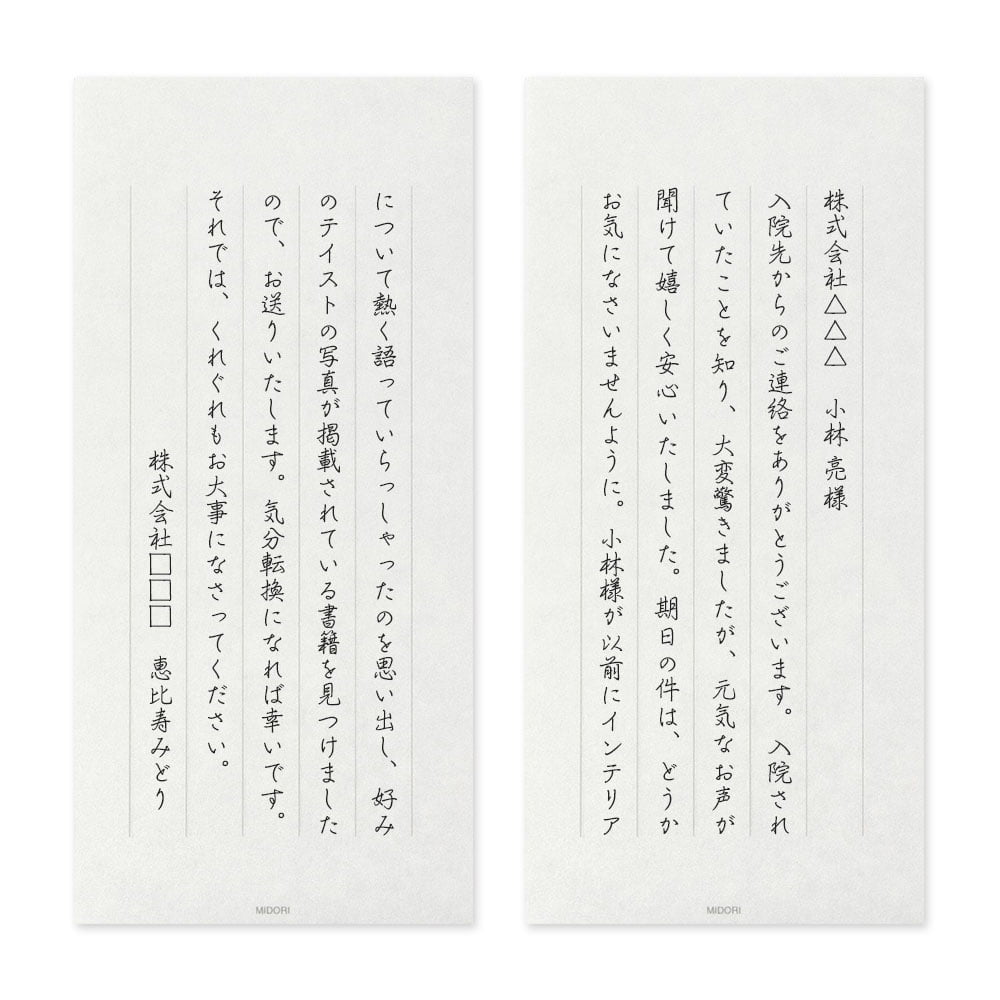 株式会社△△△　小林 亮様
入院先からのご連絡をありがとうございます。入院され
ていたことを知り、大変驚きましたが、元気なお声が
聞けて嬉しく安心いたしました。期日の件は、どうか
お気になさいませんように。小林様が以前にインテリア
MIDORI
について熱く語っていらっしゃったのを思い出し、好み
のテイストの写真が掲載されている書籍を見つけました
ので、お送りいたします。気分転換になれば幸いです。
それでは、くれぐれもお大事になさってください。
株式会社□□□　恵比寿みどり
MIDORI